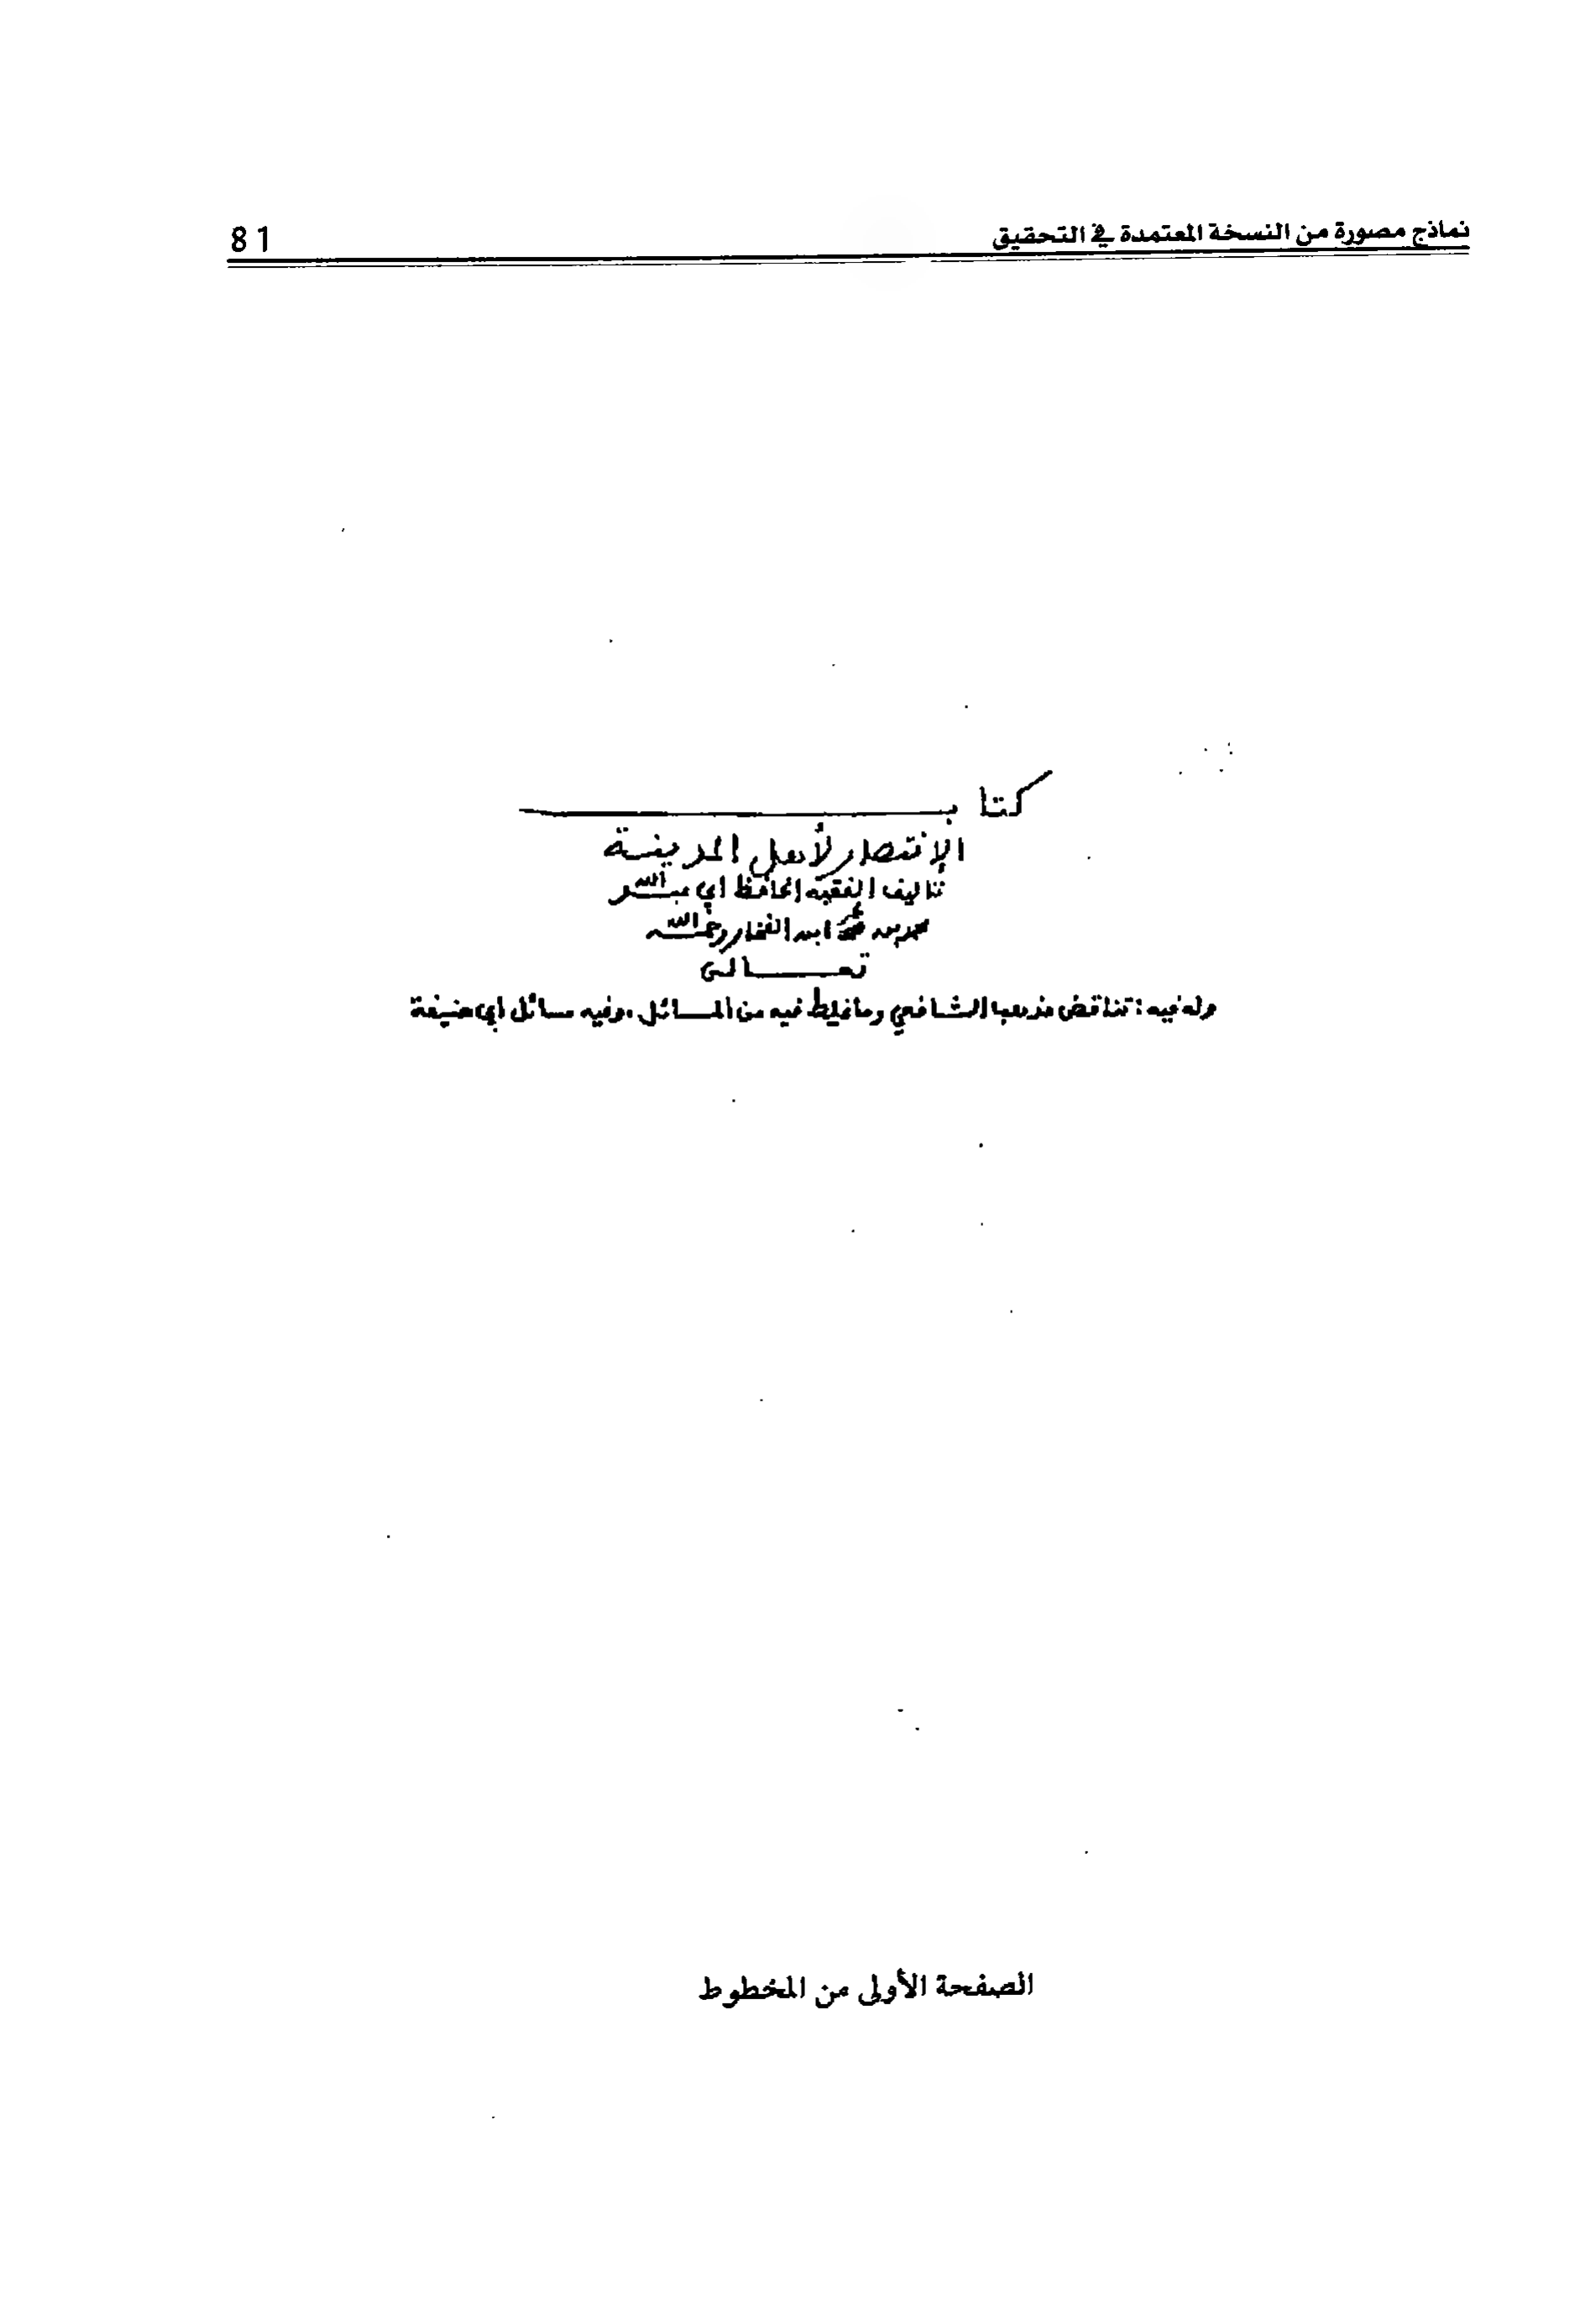 نماذج مصورة من النسخة المعتمدة في التحقيق 81
كتاب
الإنتصار لأهل المدينة
تأليف الفقيه الحافظ أبي عبد الله
محمد بن عمر ابن الفخار رحمه الله
تعالى
وله فيه: تناقض مذهب الشافعي وما غلط فيه من المسائل، وفيه مسائل أبي حنيفة
الصفحة الأولى من المخطوط